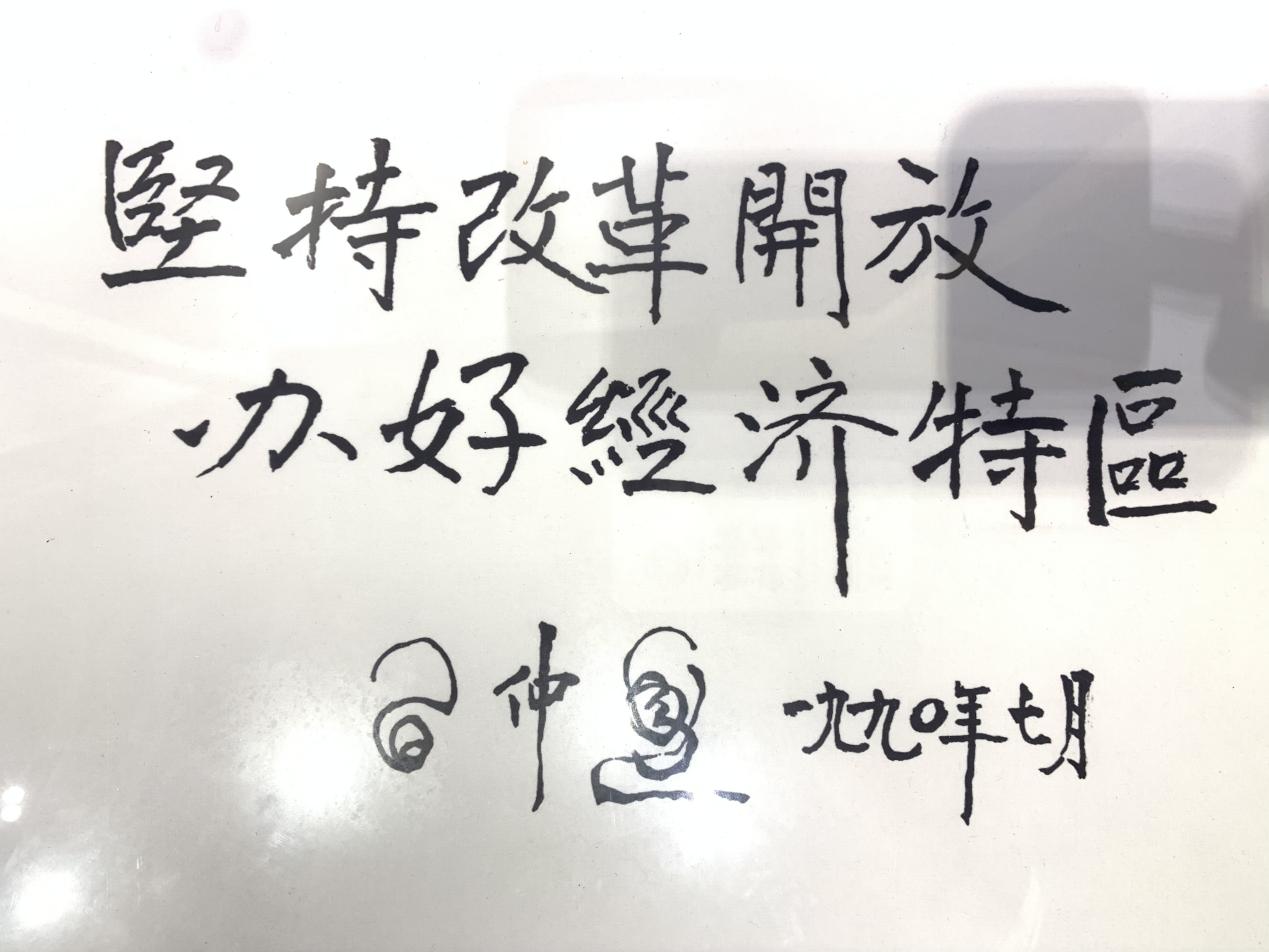 堅持改革開放
办好經济特區
習仲勳 一九九〇年七月